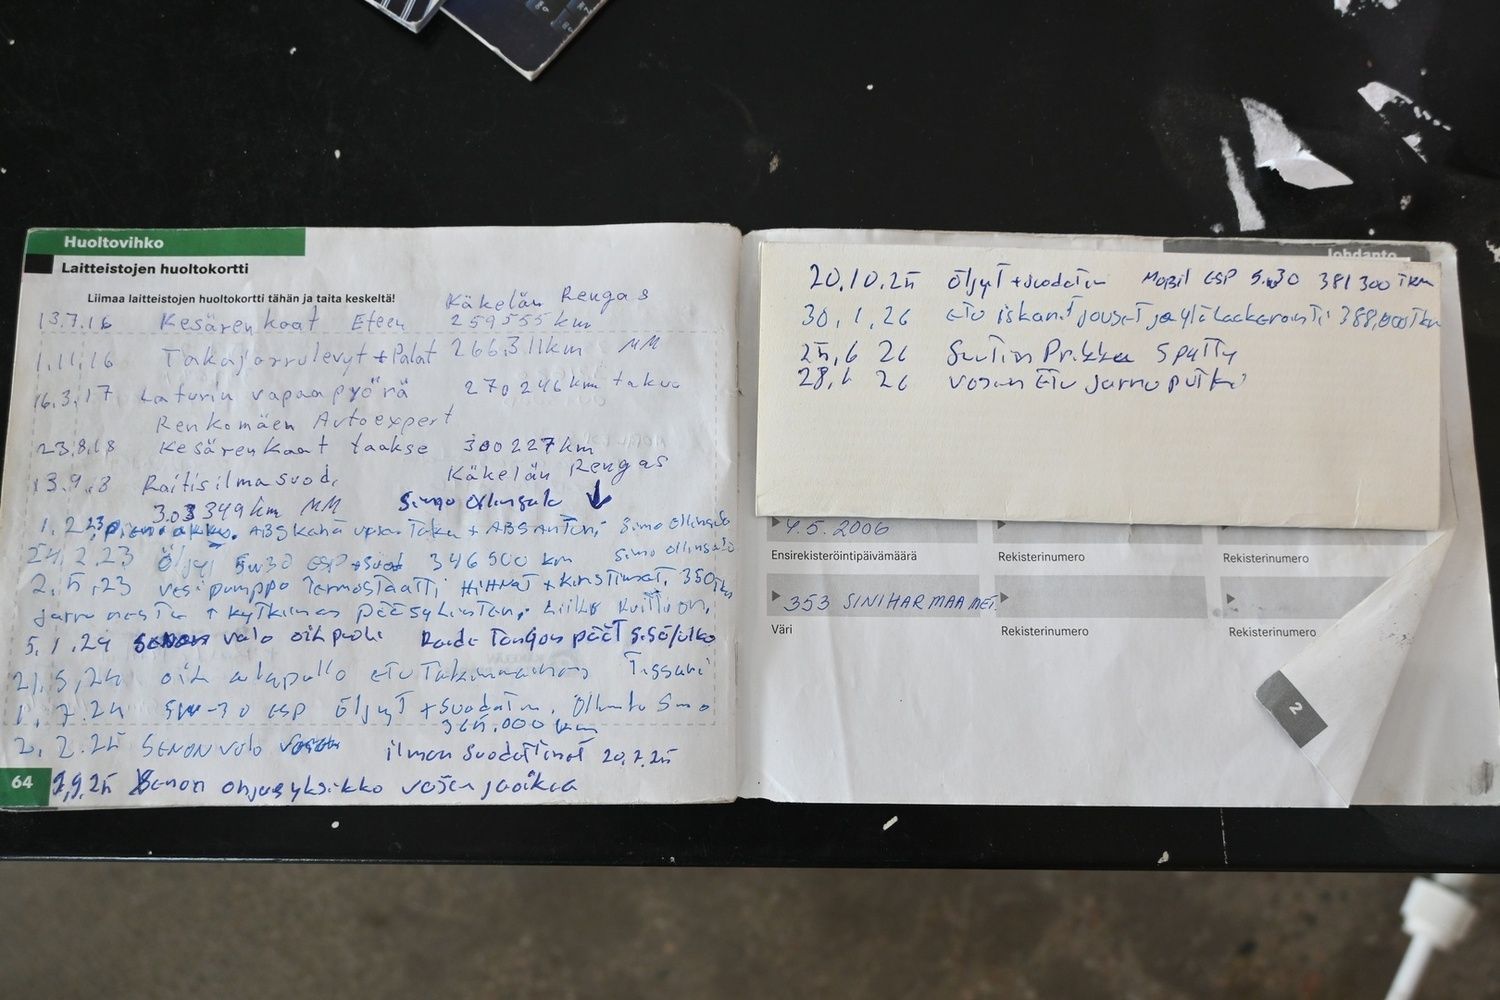 Huoltovihko
Laitteistojen huoltokortti
Liimaa laitteistojen huoltokortti tähän ja taita keskeltä!
Käkelän Rengas
13.7.16 Kesärenkaat Eteen 259555 km
1.11.16 Takajarrulevyt + Palat 266311 km MM
16.3.17 Laturin vapaapyörä 270246 km takuu
Renkomäen Autoexpert
23.8.18 Kesärenkaat taakse 300227 km
13.9.18 Raitisilmasuod. Käkelän Rengas
303349 km MM Simo
1.2.23 ABS + ABS Anturi Simo
24.2.23 Öljyt 5W30 ESP + Suod 346500 km Simo
2.5.23 vesipumppo Termostaatti HiHNAT + Kiristimet. 350
jarruneste + kytkimen
5.1.24 valo oik puoli Raide Tangon päät sisä/ulko
21.5.24 oik alapallo etu
1.7.24 5W-30 ESP Öljyt + Suodatin. Simo
365.000 km
2.2.25 SENON valo ilman Suodattimet 20.2.25
Xenon ohjausyksikko vasen
64
Johdanto
20.10.25 Öljyt + suodatin Mobil ESP 5W30 381300 Tkm
30.1.26 etu iskarit jouset ja 388,000 Tkm
25.6 26
28.6 26 vasen Etu jarruputki
4.5.2006
Ensirekisteröintipäivämäärä Rekisterinumero Rekisterinumero
353 SINIHARMAA MET.
Väri Rekisterinumero Rekisterinumero
2